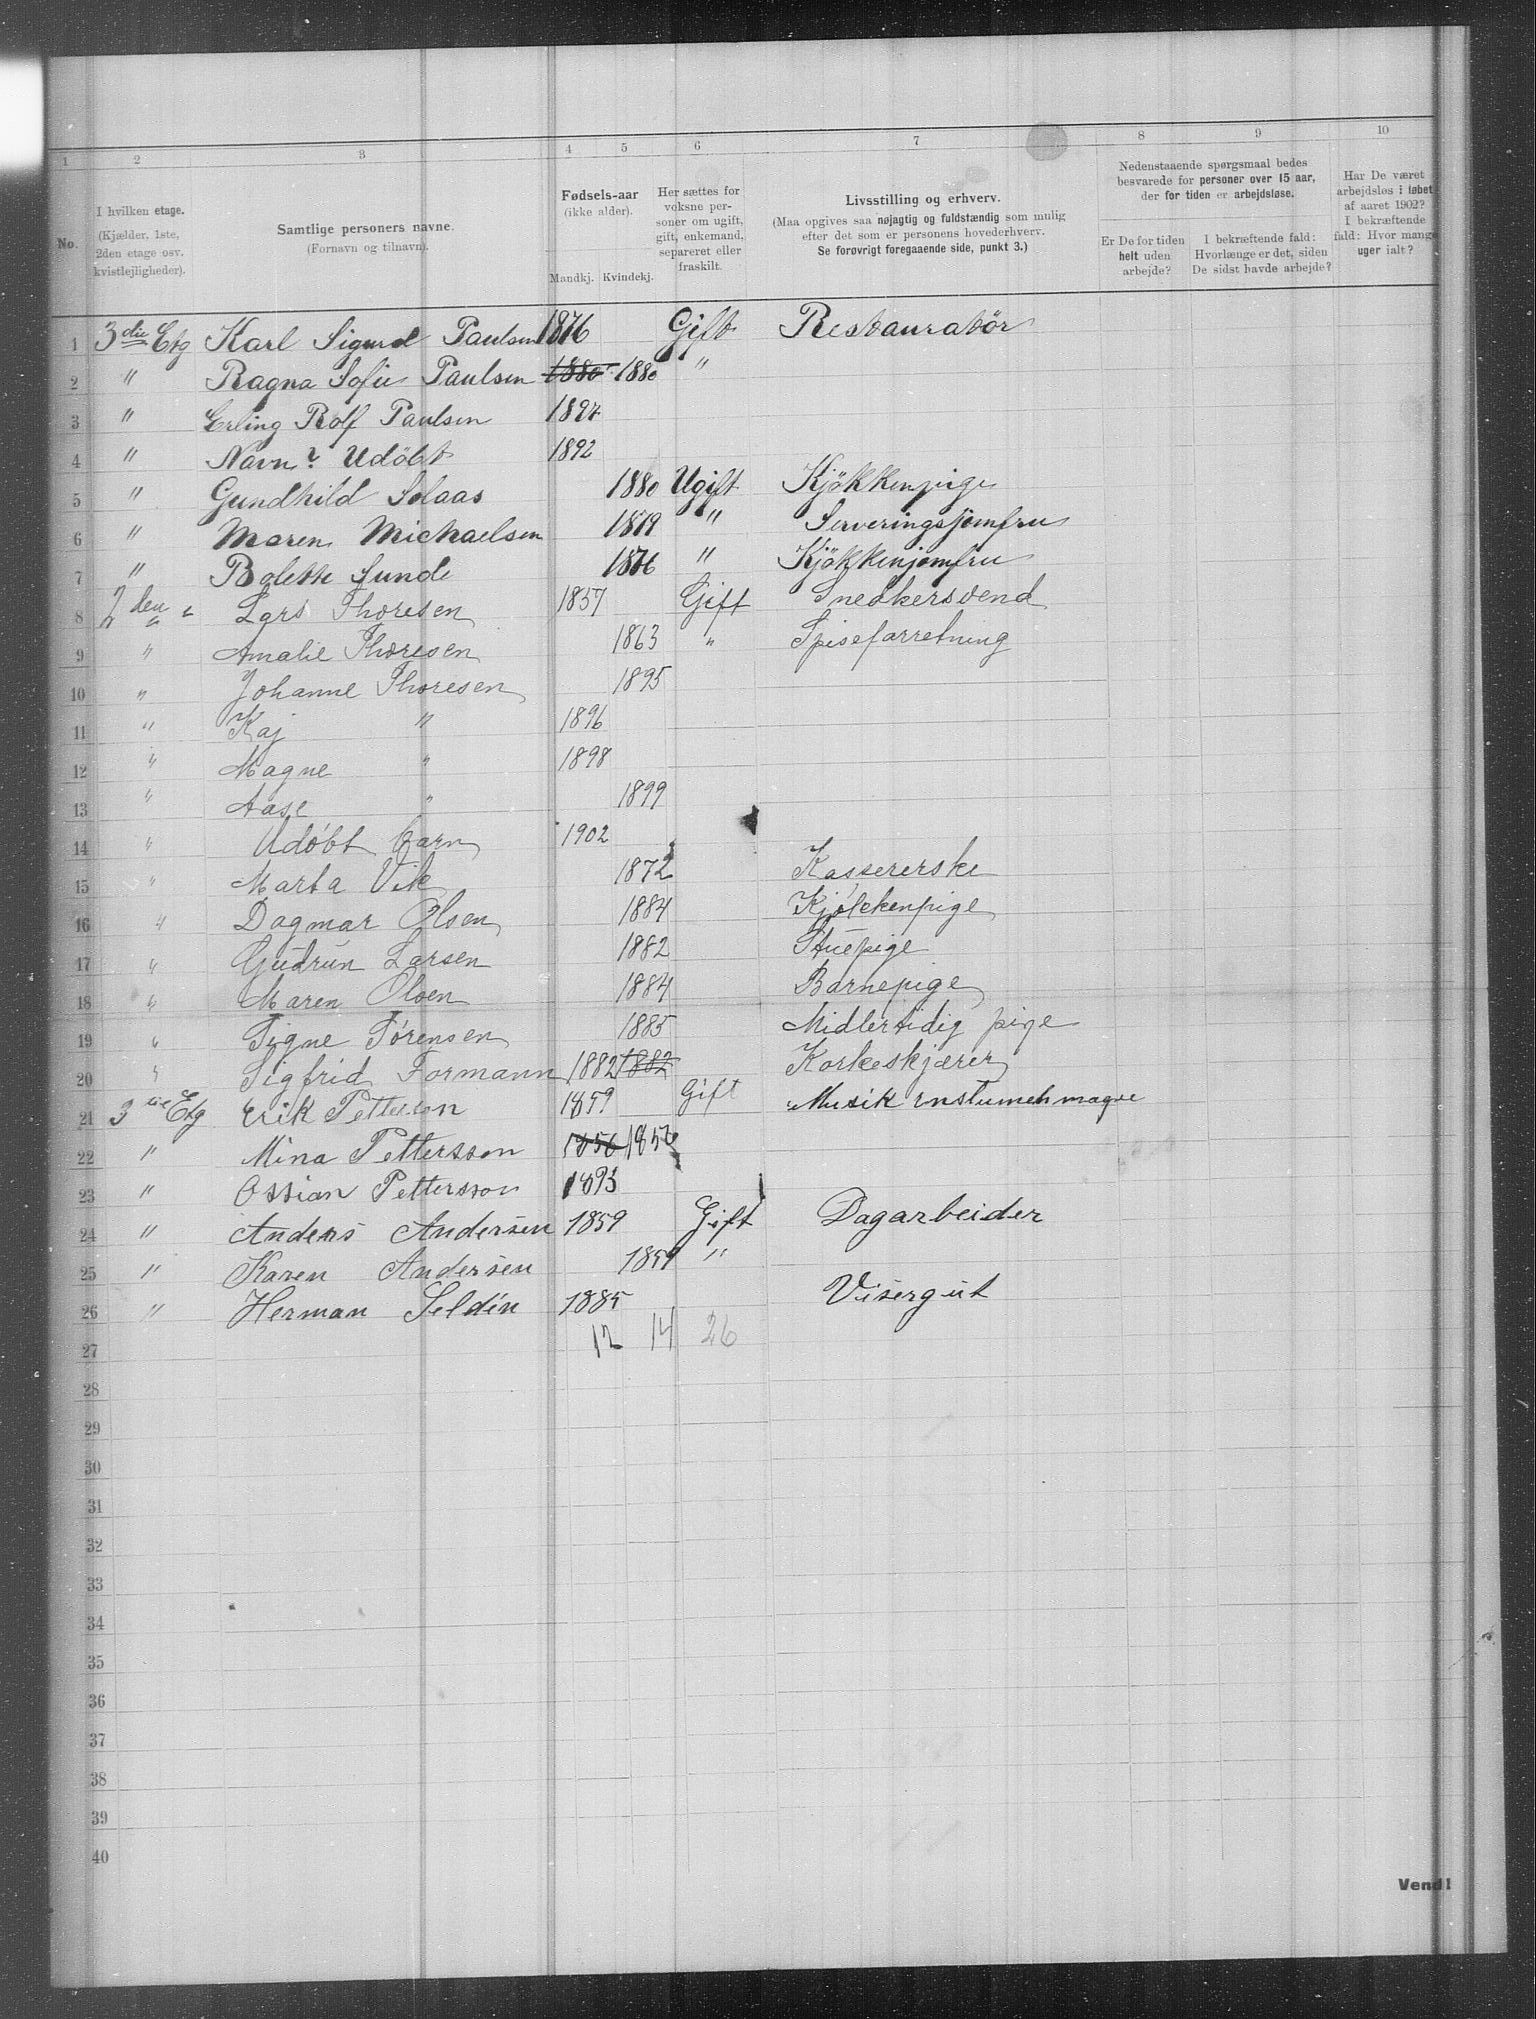 1 2 3 4 5 6 7 8 9 10
No.
I hvilken etage.
(Kjælder, 1ste,
2den etage osv.
kvistlejligheder).
Samtlige personers navne.
(Fornavn og tilnavn).
Fødsels-aar
(ikke alder).
Mandkj. Kvindekj.
Her sættes for
voksne per-
soner om ugift,
gift, enkemand,
separeret eller
fraskilt.
Livsstilling og erhverv.
(Maa opgives saa nøjagtig og fuldstændig som mulig
efter det som er personens hovederhverv.
Se forøvrigt foregaaende side, punkt 3.)
Nedenstaaende spørgsmaal bedes
besvarede for personer over 15 aar,
der for tiden er arbejdsløse.
Er De for tiden
helt uden
arbejde?
I bekræftende fald:
Hvorlænge er det, siden
De sidst havde arbejde?
Har De været
arbejdsløs i løbet
af aaret 1902?
I bekræftende
fald: Hvor mange
uger ialt?
1 3die Etg Karl Sigurd Paulsen 1876 Gift Restauratör
2 " Ragna Sofie Paulsen 1880 1880 "
3 " Erling Rolf Paulsen
4 " Navn? Udöbt 1892
5 " Gundhild Solaas 1880 Ugift Kjökkenpige
6 " Maren Michaelsen 1879 " Serveringsjomfru
7 " Bolette Sunde 1876 " Kjökkenjomfru
8 2den " Lars Thoresen 1857 Gift Snedkersvend
9 " Amalie Thoresen 1863 " Spiseforretning
10 " Johanne Thoresen 1895
11 " Kaj " 1896
12 " Magne " 1898
13 " Aase " 1899
14 " Udøbt barn 1902
15 " Marta Vik 1872 Kassererske
16 " Dagmar Olsen 1884 Kjøkkenpige
17 " Gudrun Larsen 1882 Stuepige
18 " Maren Olsen 1884 Barnepige
19 " Signe Sørensen 1885 Midlertidig pige
20 " Sigfrid Formann 1882 1882 Korkeskjærer
21 3die Etg Erik Pettersson 1859 Gift Musik
22 " Mina Pettersson 1856 1856
23 " Ossian Pettersson 1893
24 " Anders Andersen 1859 Gift Dagarbeider
25 " Karen Andersen 1859 "
26 " Herman Seldin 1885 Visergut
27 12 14 26
28
29
30
31
32
33
34
35
36
37
38
39
40
Vend!